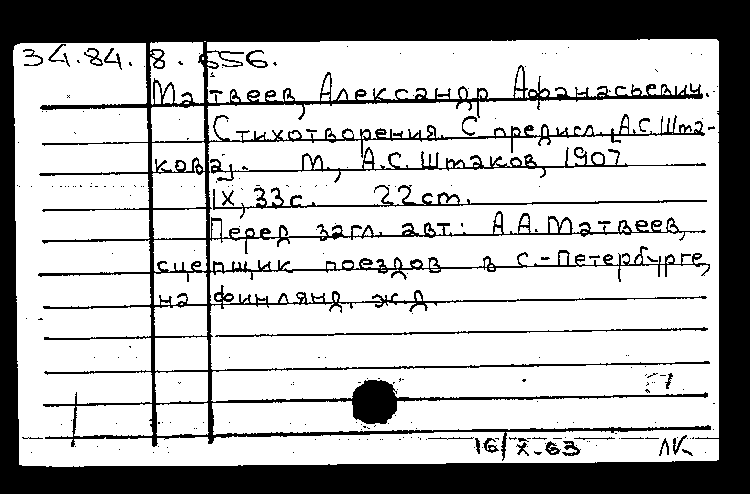 34.84. 8. 656.
Матвеев, Александр Афанасьевич.
Стихотворения. С предисл. [А.С. Шта-
кова].    М., А.С. Штаков, 1907.
IX, 33 с.    22 cm.
Перед загл. авт.: А.А. Матвеев,
сцепщик поездов в С.-Петербурге,
на финлянд. ж.д.
16/X-63    ЛК